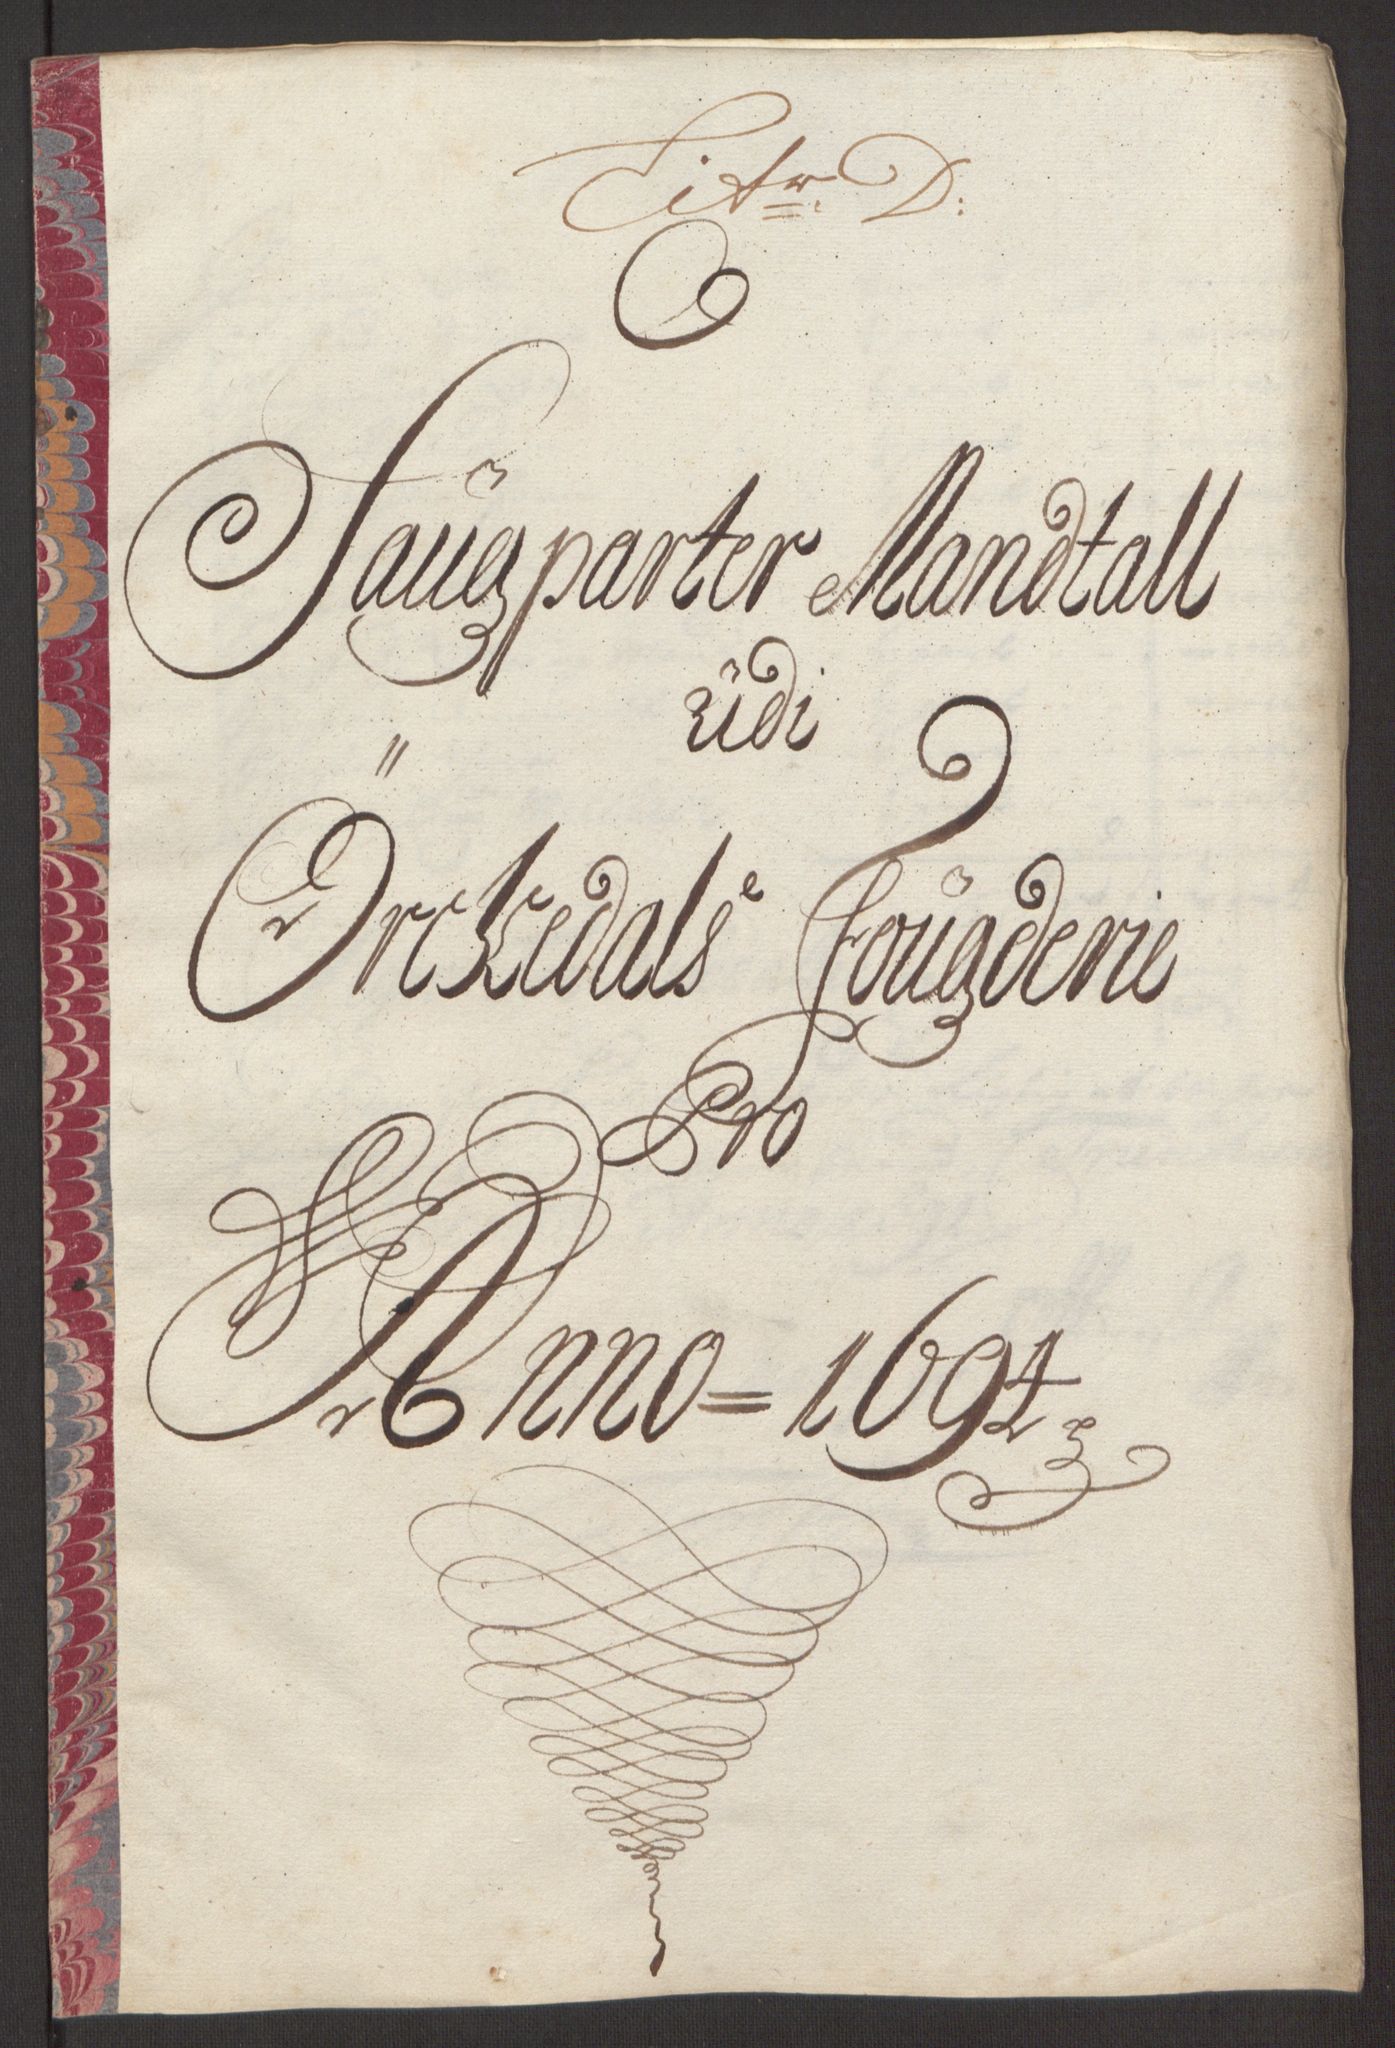 Litr. D:
Saugparter Mandtall
udi
Örckedals Fougderie
Pro
Anno = 1694